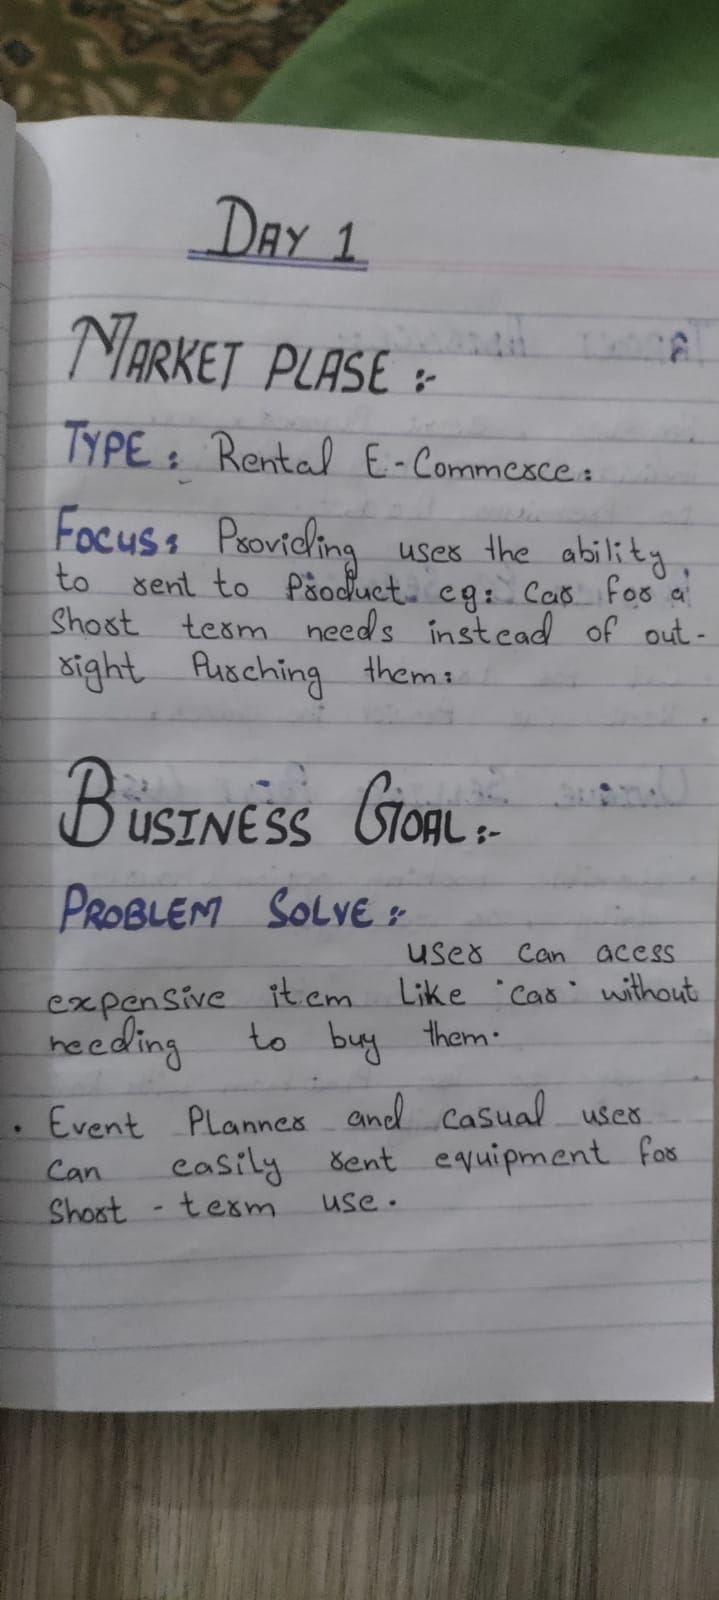 DAY 1
MARKET PLASE :-
TYPE : Rental E-Commerce :
FOCUS : Providing user the ability
to rent to Product. eg: Car for a
Short term needs instead of out-
right Purching them :
BUSINESS GOAL :-
PROBLEM SOLVE :-
user can acess
expensive item Like 'car' without
needing to buy them.
. Event PLanner and casual user
can easily rent equipment for
Short - term use.